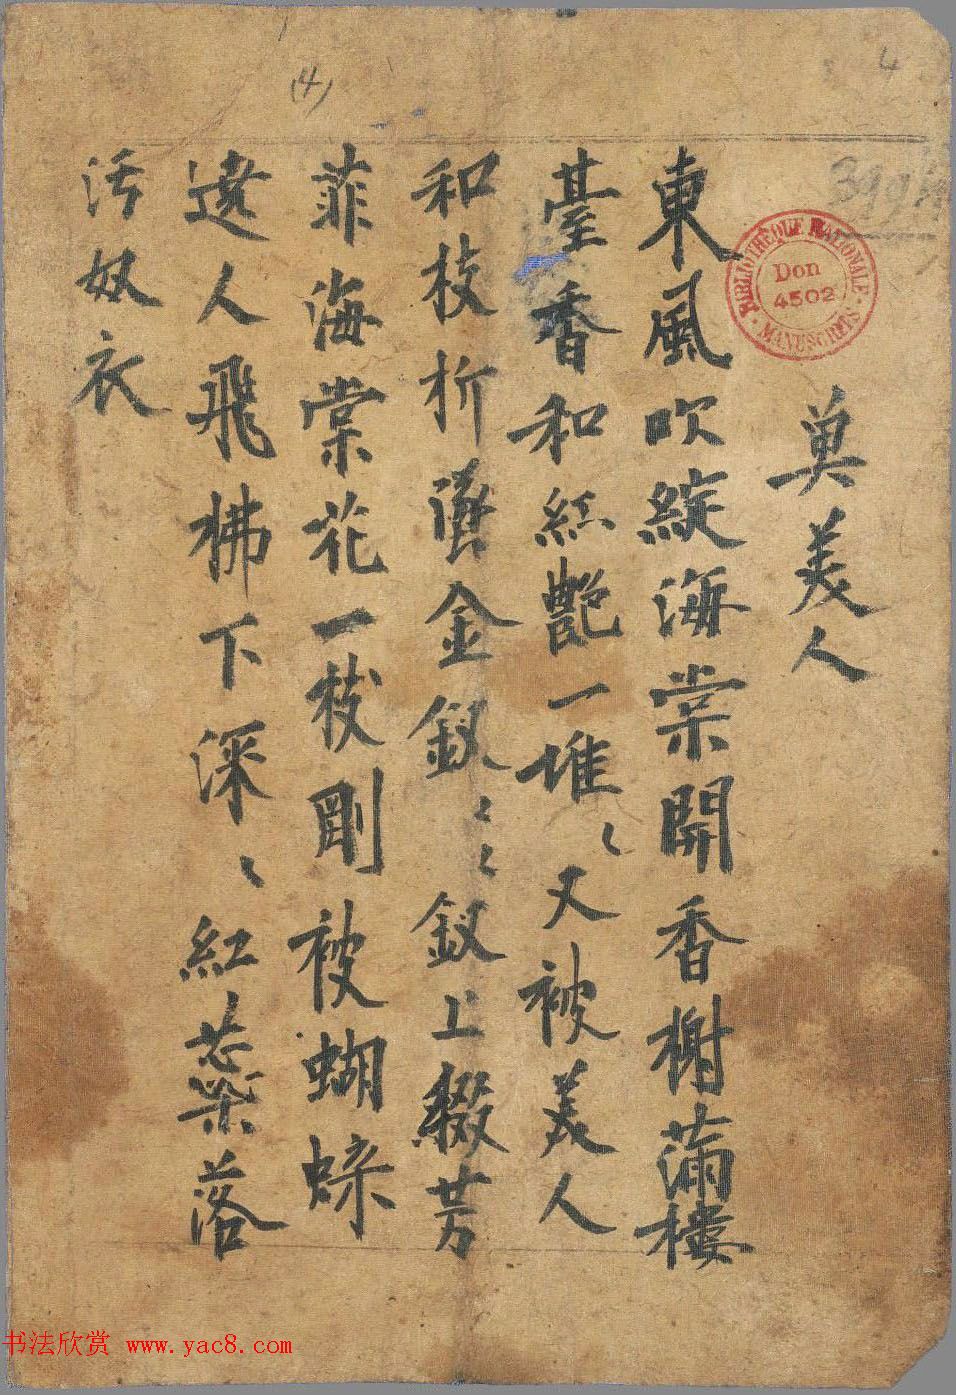 奠美人
東風吹綻海棠開香榭滿樓
臺香和紅艷一堆〻又被美人
和枝折墜金釵〻〻釵上綴芳
菲海棠花一枝剛被蝴蝶
遶人飛拂下深〻紅蕊落
污奴衣
BIBLIOTHÈQUE NATIONALE
Don
4502
MANUSCRITS
(4)
4
书法欣赏 www.yac8.com